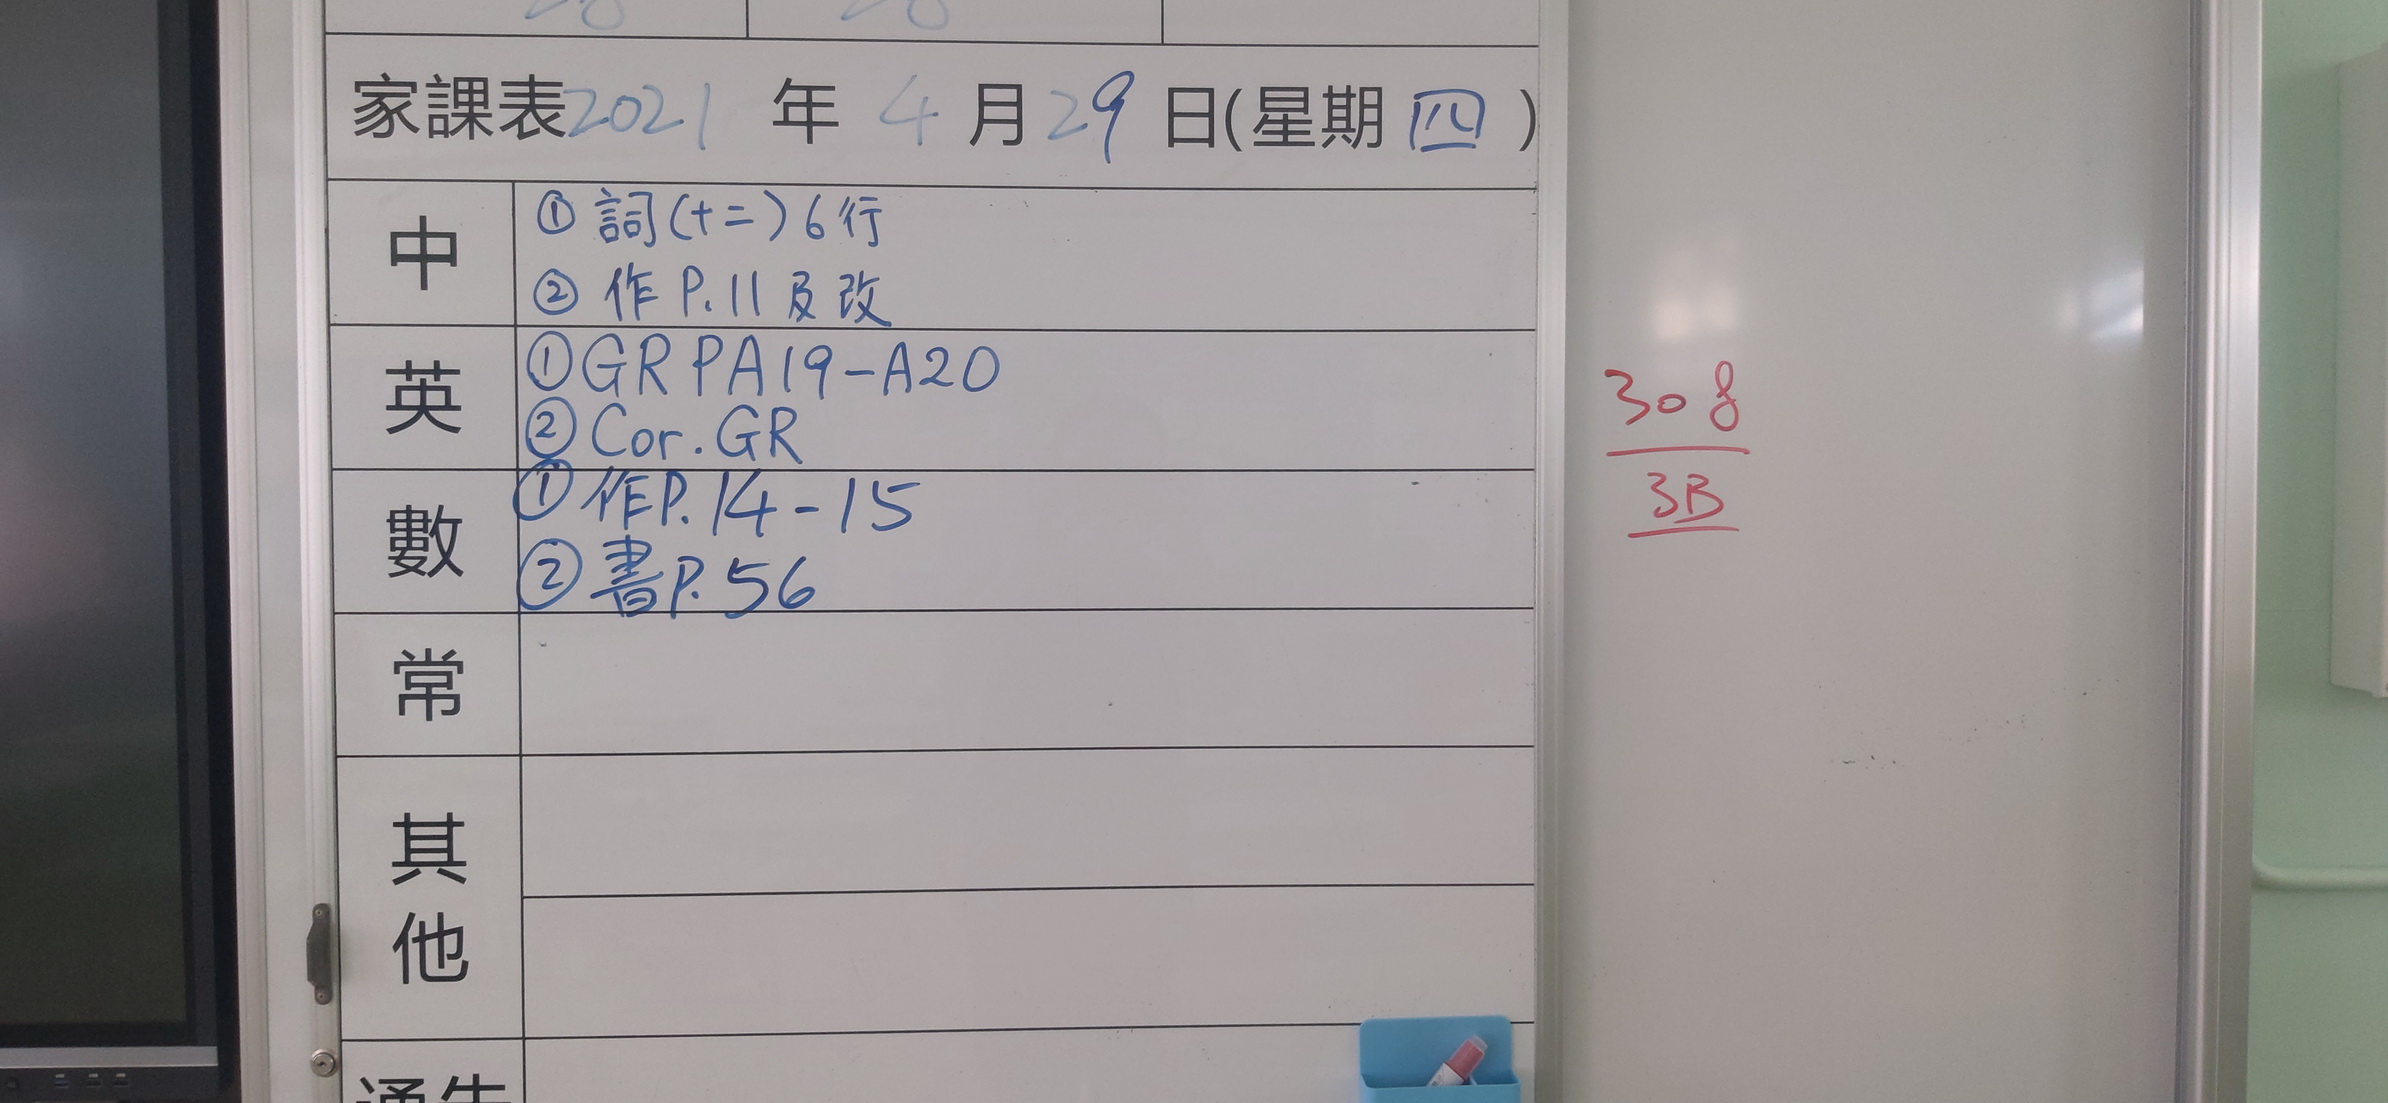 28 28
家課表2021年4月29日(星期四)
中
① 詞(十二)6行
② 作 P.11 及改
英
① GR PA19-A20
② Cor. GR
數
① 作P.14-15
② 書P.56
常
其他
通告
308
3B